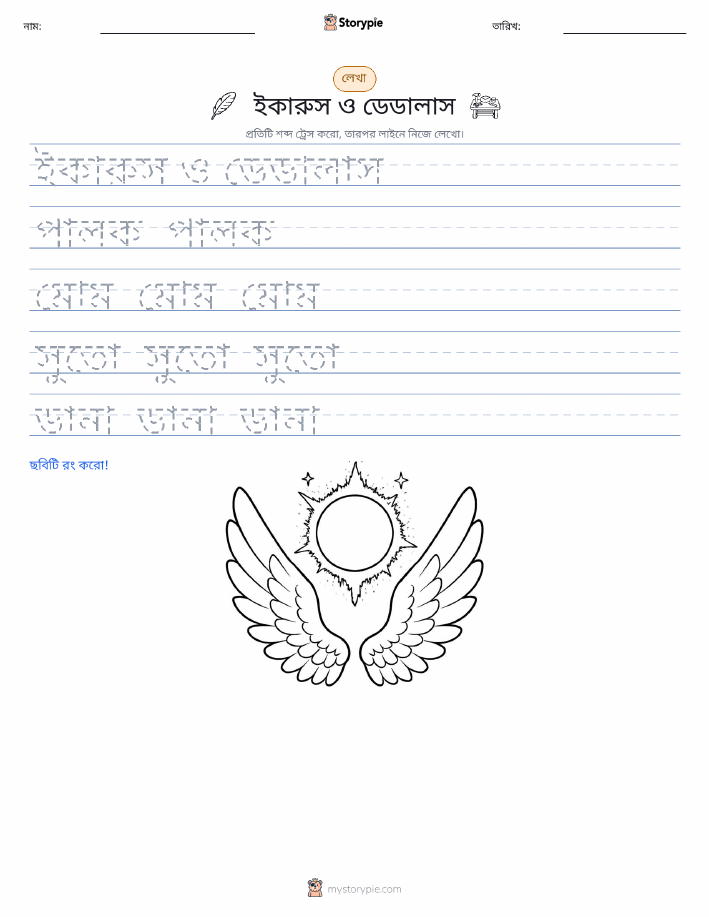 নাম:
Storypie
তারিখ:
লেখা
ইকারুস ও ডেডালাস
প্রতিটি শব্দ ট্রেস করো, তারপর লাইনে নিজে লেখো।
ইকারুস ও ডেডালাস
পালক পালক
মোম মোম মোম
সুতো সুতো সুতো
ডানা ডানা ডানা
ছবিটি রং করো!
mystorypie.com